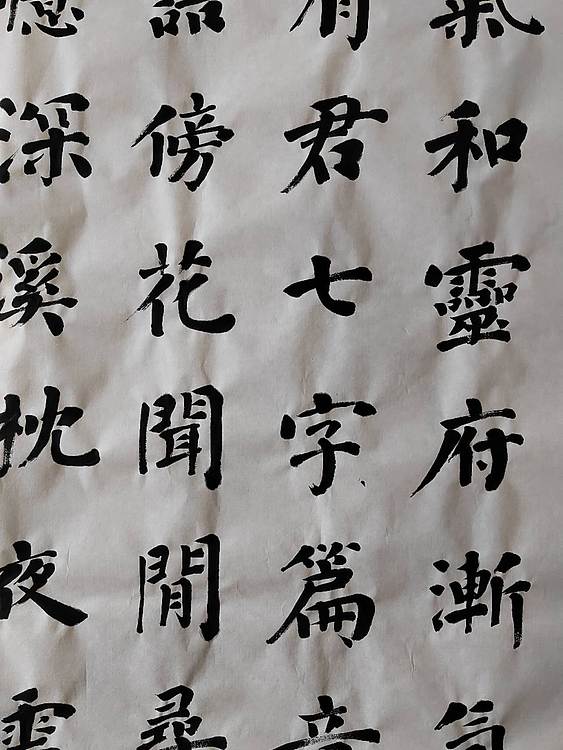 氣和靈府漸
有君七字篇
傍花聞閒尋
深溪枕夜雲